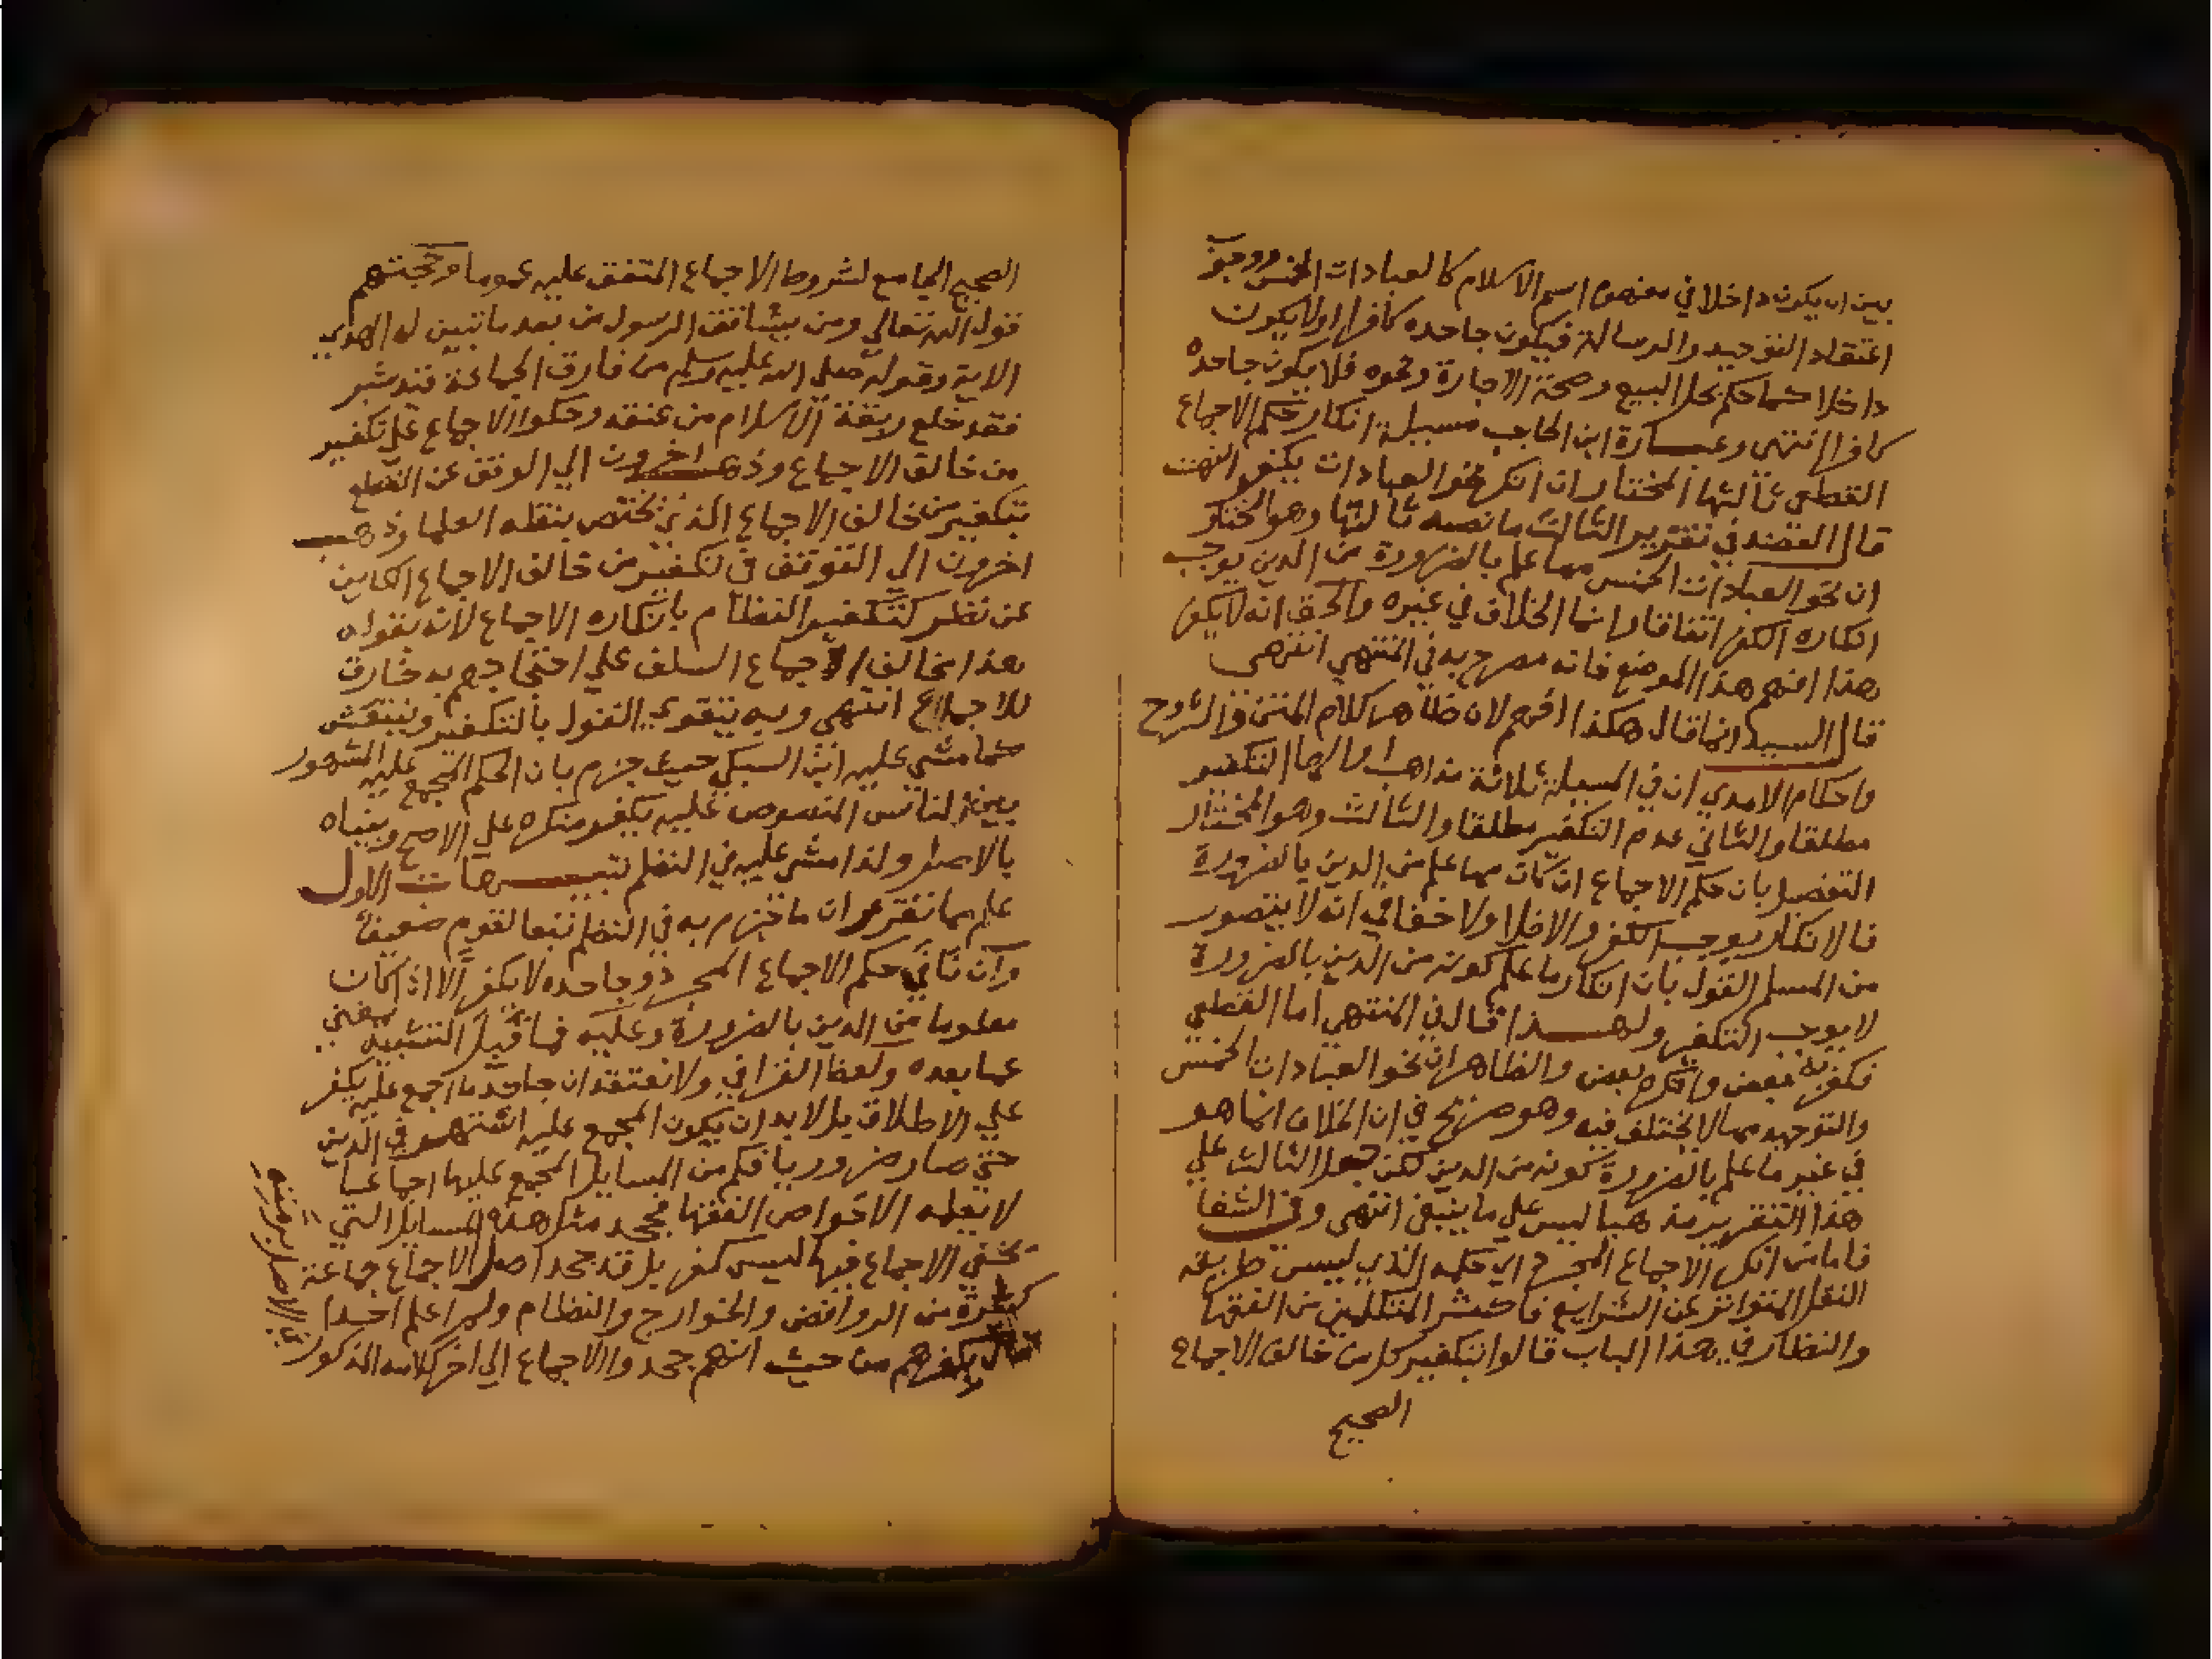 بين ان يكون داخلا في مفهوم اسم الاسلام كالعبادات الخمس ووجوب
اعتقاد التوحيد والرسالة فيكون جاحده كافرا اولا يكون
داخلا كما حكم بحل البيع وصحة الاجارة ونحوه فلا يكون جاحده
كافرا انتهى وعبارة ابن الحاجب مسيلة انكار حكم الاجماع
القطعي ثالثها المختار ان انكر نحو العبادات يكفر انتهت
قال العضد في تقرير الثالث ما نصه ثالثها وهو المختار
ان نحو العبادات الخمس مما علم بالضرورة من الدين يوجب
انكاره الكفر اتفاقا وانما الخلاف في غيره والحق انه لا يكفر
هذا افهم هذا الموضع فانه مصرح به في المنتهي انتهى
قال السيد انما قال هكذا افهم لان ظاهر كلام المتن والشروح
واحكام الامدي ان في المسيلة ثلاثة مذاهب اولها التكفير
مطلقا والثاني عدم التكفير مطلقا والثالث وهو المختار
التفصيل بان حكم الاجماع ان كان مما علم من الدين بالضرورة
فالانكار يوجب الكفر والا فلا ولا خفا في انه لا يتصور
من المسلم القول بان انكار ما علم كونه من الدين بالضرورة
لا يوجب التكفير ولهذا قال في المنتهي اما القطعي
فكفر به بعض وانكره بعض والظاهر ان نحو العبادات الخمس
والتوحيد مما لا يختلف فيه وهو صريح في ان الخلاف انما هو
في غير ما علم بالضرورة كونه من الدين لكن جعل الثالث علي
هذا التقرير مذهبا ليس علي ما ينبغي انتهى وفي الشفا
فاما من انكر الاجماع المجرد اي حكمه الذي ليس طريقه
النقل المتواتر عن الشرايع فاكثر المتكلمين من الفقها
والنظار في هذا الباب قالوا بتكفير كل من خالف الاجماع
الصحيح
الصحيح الجامع لشروط الاجماع المتفق عليه عموما وحجتهم
قول الله تعالي ومن يشاقق الرسول من بعد ما تبين له الهدي
الاية وقوله صلي الله عليه وسلم من فارق الجماعة قيد شبر
فقد خلع ربقة الاسلام من عنقه وحكوا الاجماع علي تكفير
من خالف الاجماع وذهب اخرون الي الوقف عن القطع
بتكفير من خالف الاجماع الذي يختص بنقله العلما وذهب
اخرون الي التوقف في تكفير من خالف الاجماع الكاين
عن نظر كتكفير النظام بانكاره الاجماع لانه بقوله
هذا مخالف لاجماع السلف علي احتجاجهم به خارق
للاجماع انتهى وبه يتقوي القول بالتكفير وينتقش
كما مشي عليه ابن السبكي حيث جزم بان الحكم المجمع عليه المشهور
بين الناس المنصوص عليه يكفر منكره علي الاصح وبيناه
بالاصل ولذا مشي عليه في النظم تنبيهات الاول
علم مما تقرر ان ما جزم به في النظم تبعا لقوم ضعيف
وان نافي حكم الاجماع المجرد وجاحده لا يكفر الا اذا كان
معلوما من الدين بالضرورة وعليه فما قبل التشبيه يغني
عما بعده ولفظ القرافي ولا نعتقد ان جاحد ما اجمع عليه يكفر
علي الاطلاق بل لا بد ان يكون المجمع عليه اشتهر في الدين
حتي صار ضروريا فكم من المسايل المجمع عليها اجماعا
لا يعلمه الا خواص الفقها فجحد مثل هذه المسايل التي
يخفي الاجماع فيها ليس كفر بل قد جحد اصل الاجماع جماعة
كثيرة من الروافض والخوارج والنظام ولم اعلم احدا
قال بكفرهم من حيث انهم جحدوا الاجماع الي اخر كلامه المذكور